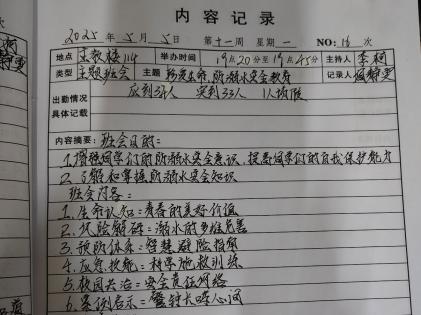 内容记录
2025年5月5日 第十一周 星期一 NO:16次
地点 主教楼114 举办时间 19点20分至19点45分 主持人 李
类型 主题班会 主题 珍爱生命,防溺水安全教育 记录人
出勤情况 应到34人 实到33人 1人请假
具体记载
内容摘要: 班会目的:
1.增强同学们的防溺水安全意识,提高同学们的自我保护能力
2.了解和掌握防溺水安全知识
班会内容:
1.生命认知:青春的美好价值
2.风险解码:溺水的多维危害
3.预防体系:智慧避险指南
4.应急技能:科学施救训练
5.校园共治:安全责任网络
6.案例启示:警钟长鸣心间